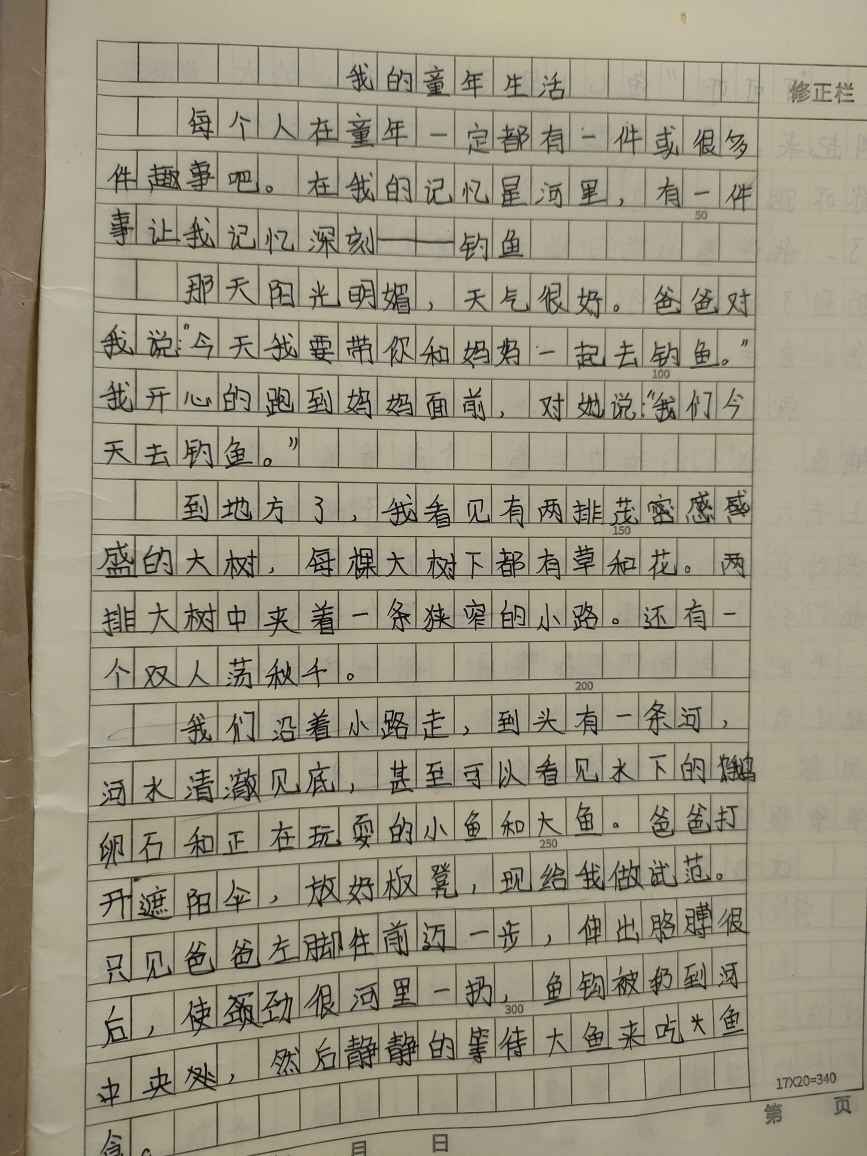 我的童年生活
修正栏
每个人在童年一定都有一件或很多
件趣事吧。在我的记忆星河里，有一件
50
事让我记忆深刻——钓鱼
那天阳光明媚，天气很好。爸爸对
我说:“今天我要带你和妈妈一起去钓鱼。”
100
我开心的跑到妈妈面前，对她说:“我们今
天去钓鱼。”
到地方了，我看见有两排茂密感感
150
盛的大树，每棵大树下都有草和花。两
排大树中夹着一条狭窄的小路。还有一
个双人荡秋千。
200
我们沿着小路走，到头有一条河，
河水清澈见底，甚至可以看见水下的鹅
卵石和正在玩耍的小鱼和大鱼。爸爸打
250
开遮阳伞，放好板凳，现给我做试范。
只见爸爸左脚往前迈一步，伸出胳膊很
后，使颈劲很河里一扔，鱼钩被扔到河
300
中央处，然后静静的等待大鱼来吃大鱼
食。
17X20=340
月 日
第 页